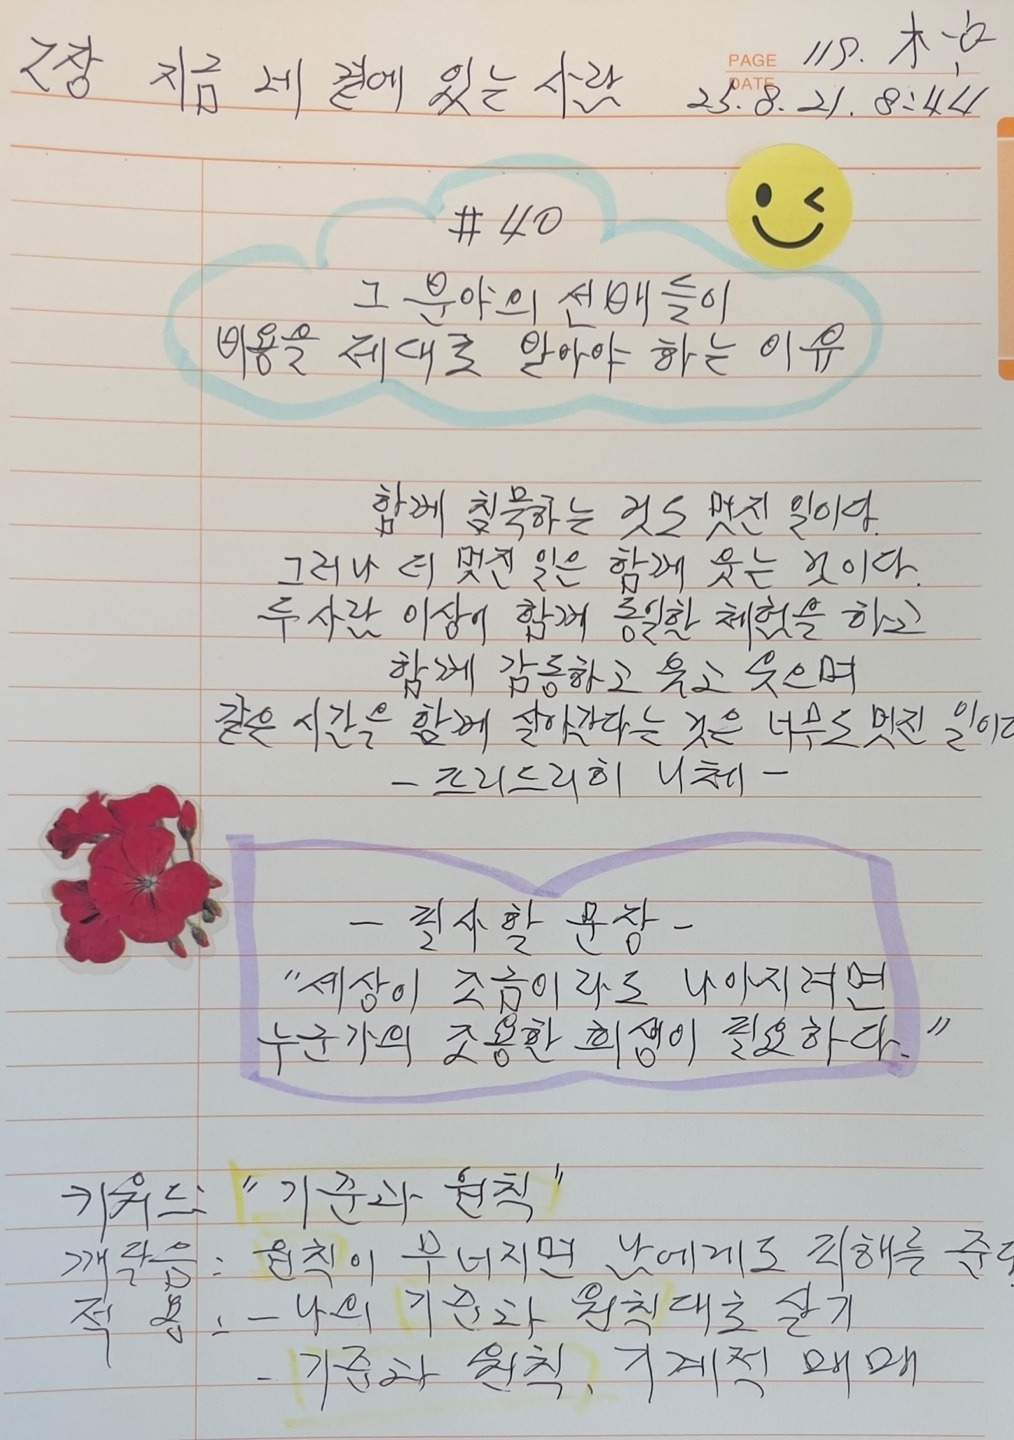 2장 지금 네 곁에 있는 사람
PAGE 115. 木
DATE 25. 8. 21. 8:44
#40
그 분야의 선배들이
비용을 제대로 알아야 하는 이유
함께 침묵하는 것도 멋진 일이다.
그러나 더 멋진 일은 함께 웃는 것이다.
두 사람 이상이 함께 동일한 체험을 하고
함께 감동하고 울고 웃으며
같은 시간을 함께 살아간다는 것은 너무도 멋진 일이다
- 프리드리히 니체 -
- 필사할 문장 -
"세상이 조금이라도 나아지려면
누군가의 조용한 희생이 필요하다."
키워드: "기준과 원칙"
깨달음: 원칙이 무너지면 남에게도 피해를 준다
적용: - 나의 기준과 원칙대로 살기
- 기준과 원칙, 기계적 매매